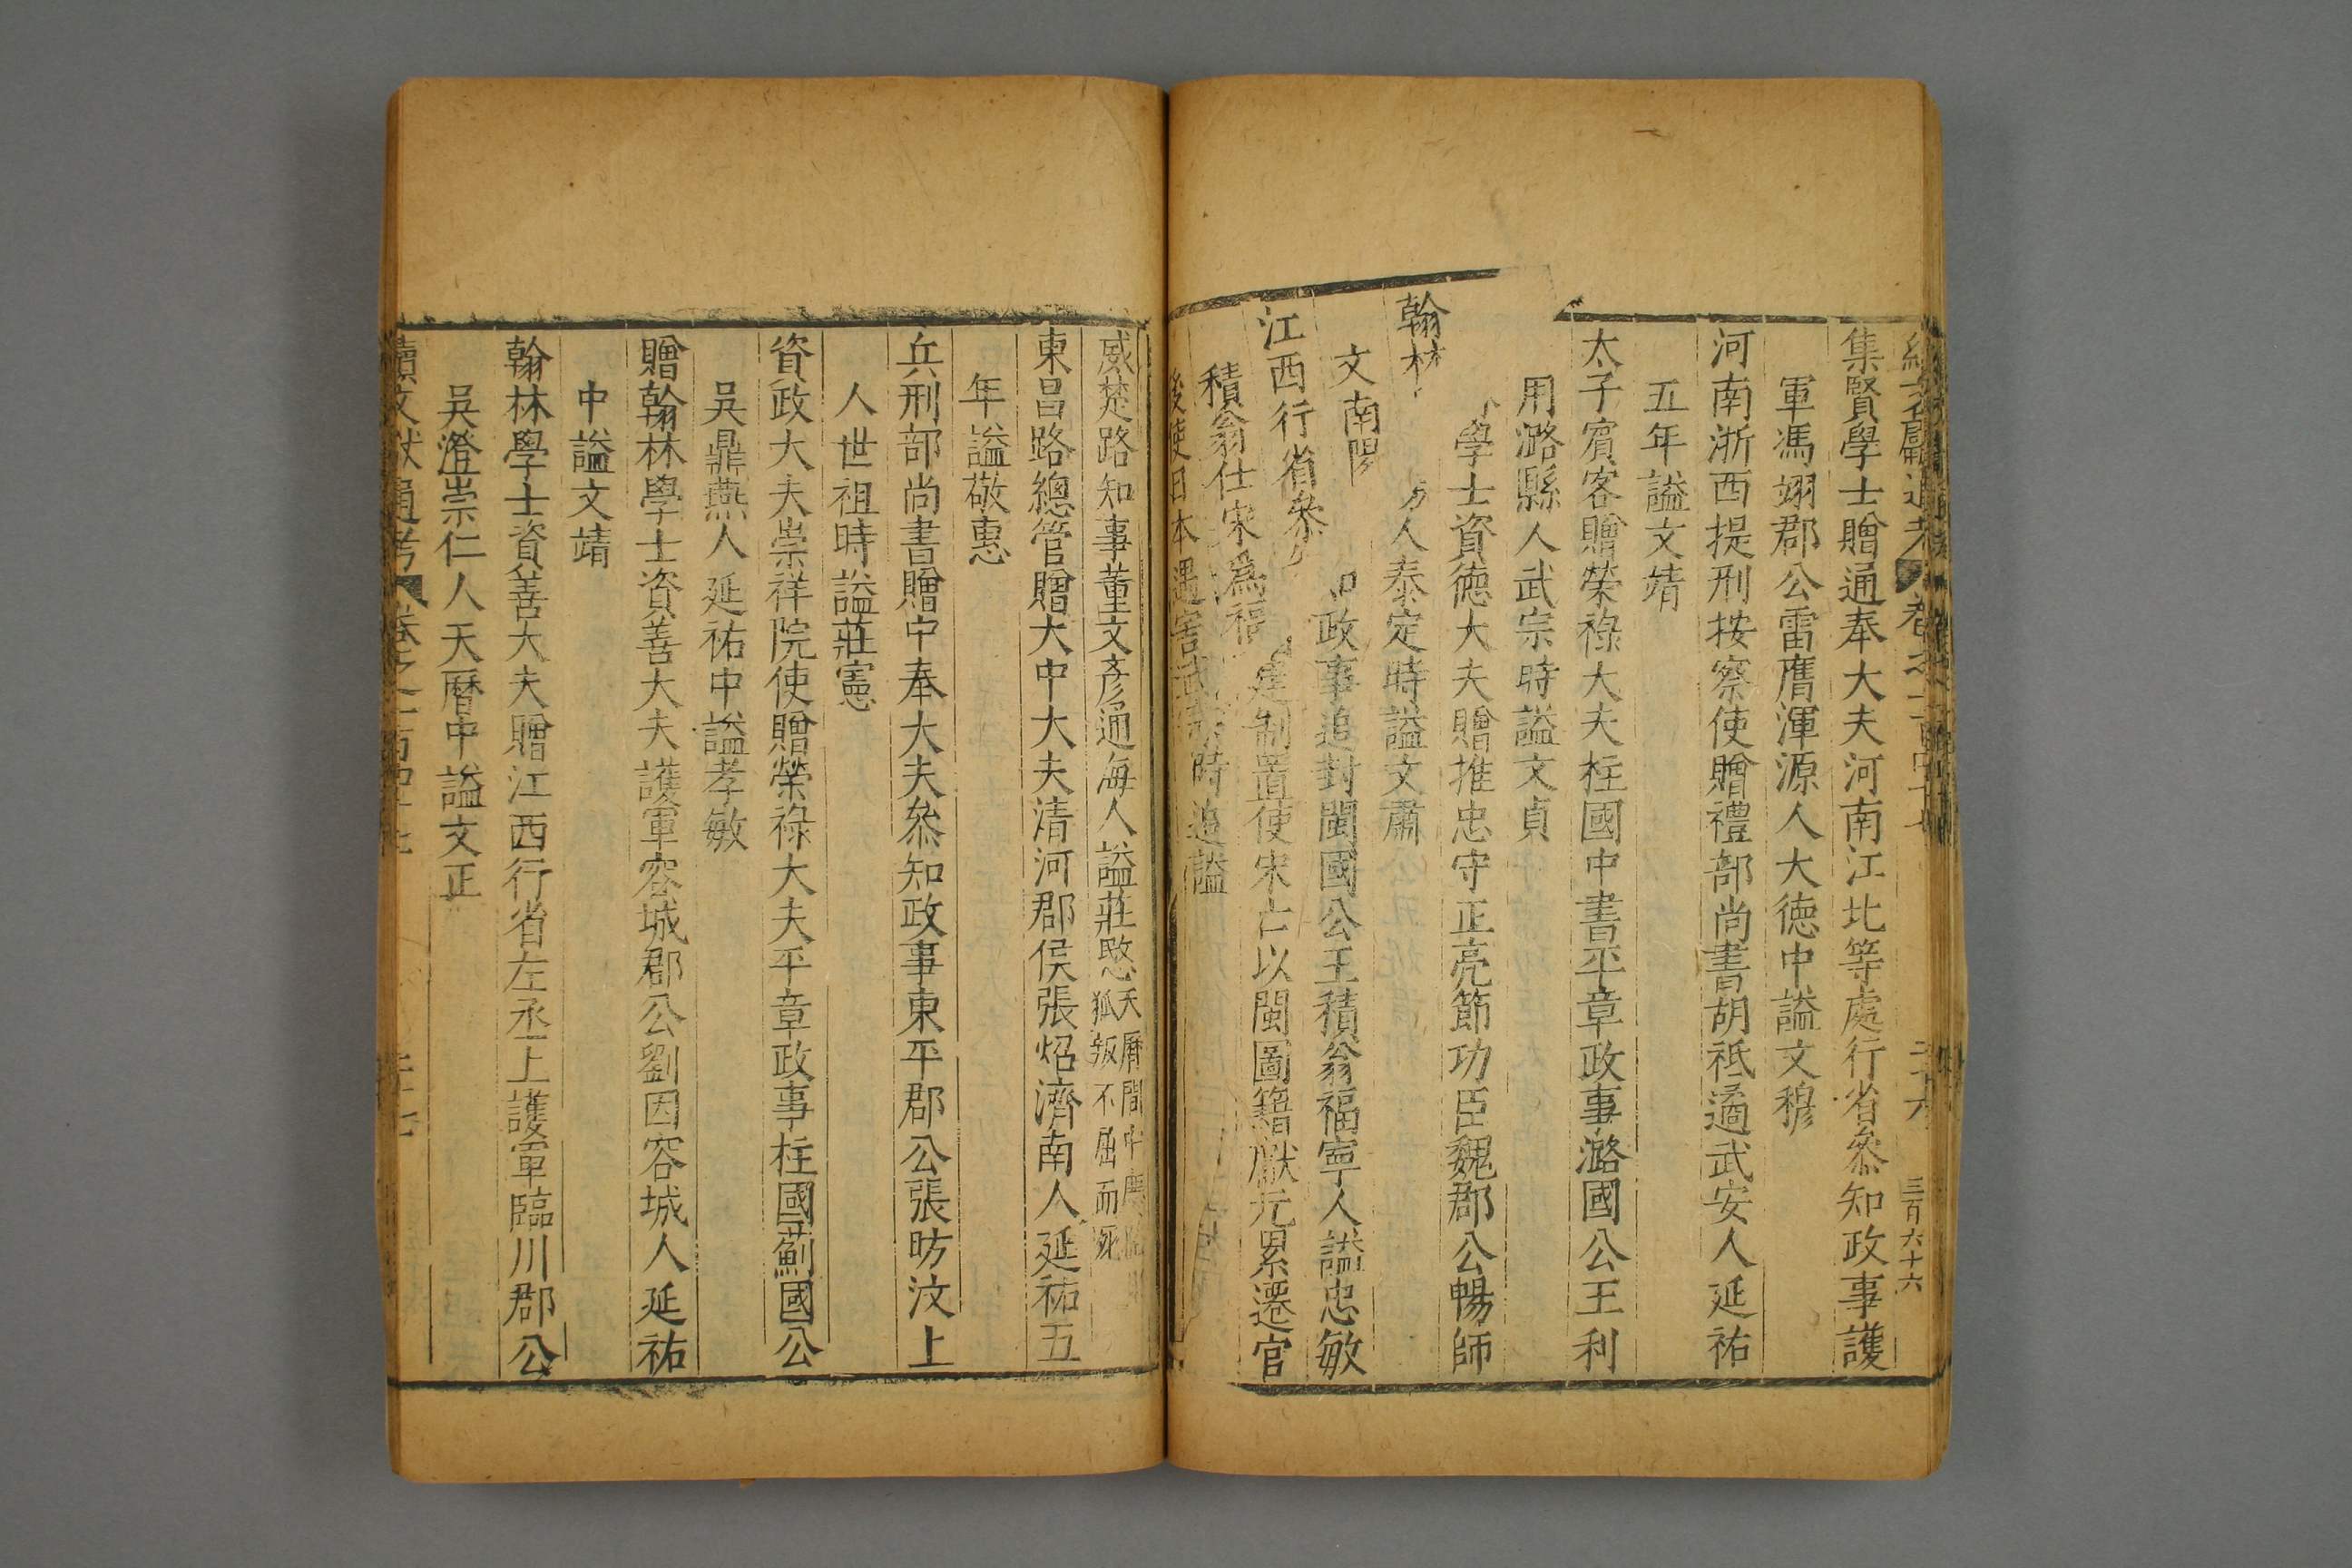 集賢學士贈通奉大夫河南江北等處行省叅知政事護
軍馮翊郡公雷膺渾源人大德中謚文穆
河南浙西提刑按察使贈禮部尚書胡祗遹武安人延祐
五年謚文靖
太子賓客贈榮祿大夫柱國中書平章政事潞國公王利
用潞縣人武宗時謚文貞
翰林學士資德大夫贈推忠守正亮節功臣魏郡公暢師
文南陽人泰定時謚文肅
江西行省叅政事追封閩國公王積翁福寧人謚忠敏
積翁仕宋為福建制置使宋亡以閩圖籍獻元累遷官
後使日本遇害武宗時追謚
威楚路知事董文彥通海人謚莊愍天曆間中慶
狐叛不屈而死
東昌路總管贈大中大夫清河郡侯張炤濟南人延祐五
年謚敬惠
兵刑部尚書贈中奉大夫叅知政事東平郡公張昉汶上
人世祖時謚莊憲
資政大夫崇祥院使贈榮祿大夫平章政事柱國薊國公
吳鼎燕人延祐中謚孝敏
贈翰林學士資善大夫護軍容城郡公劉因容城人延祐
中謚文靖
翰林學士資善大夫贈江西行省左丞上護軍臨川郡公
吳澄崇仁人天曆中謚文正
續文獻通考